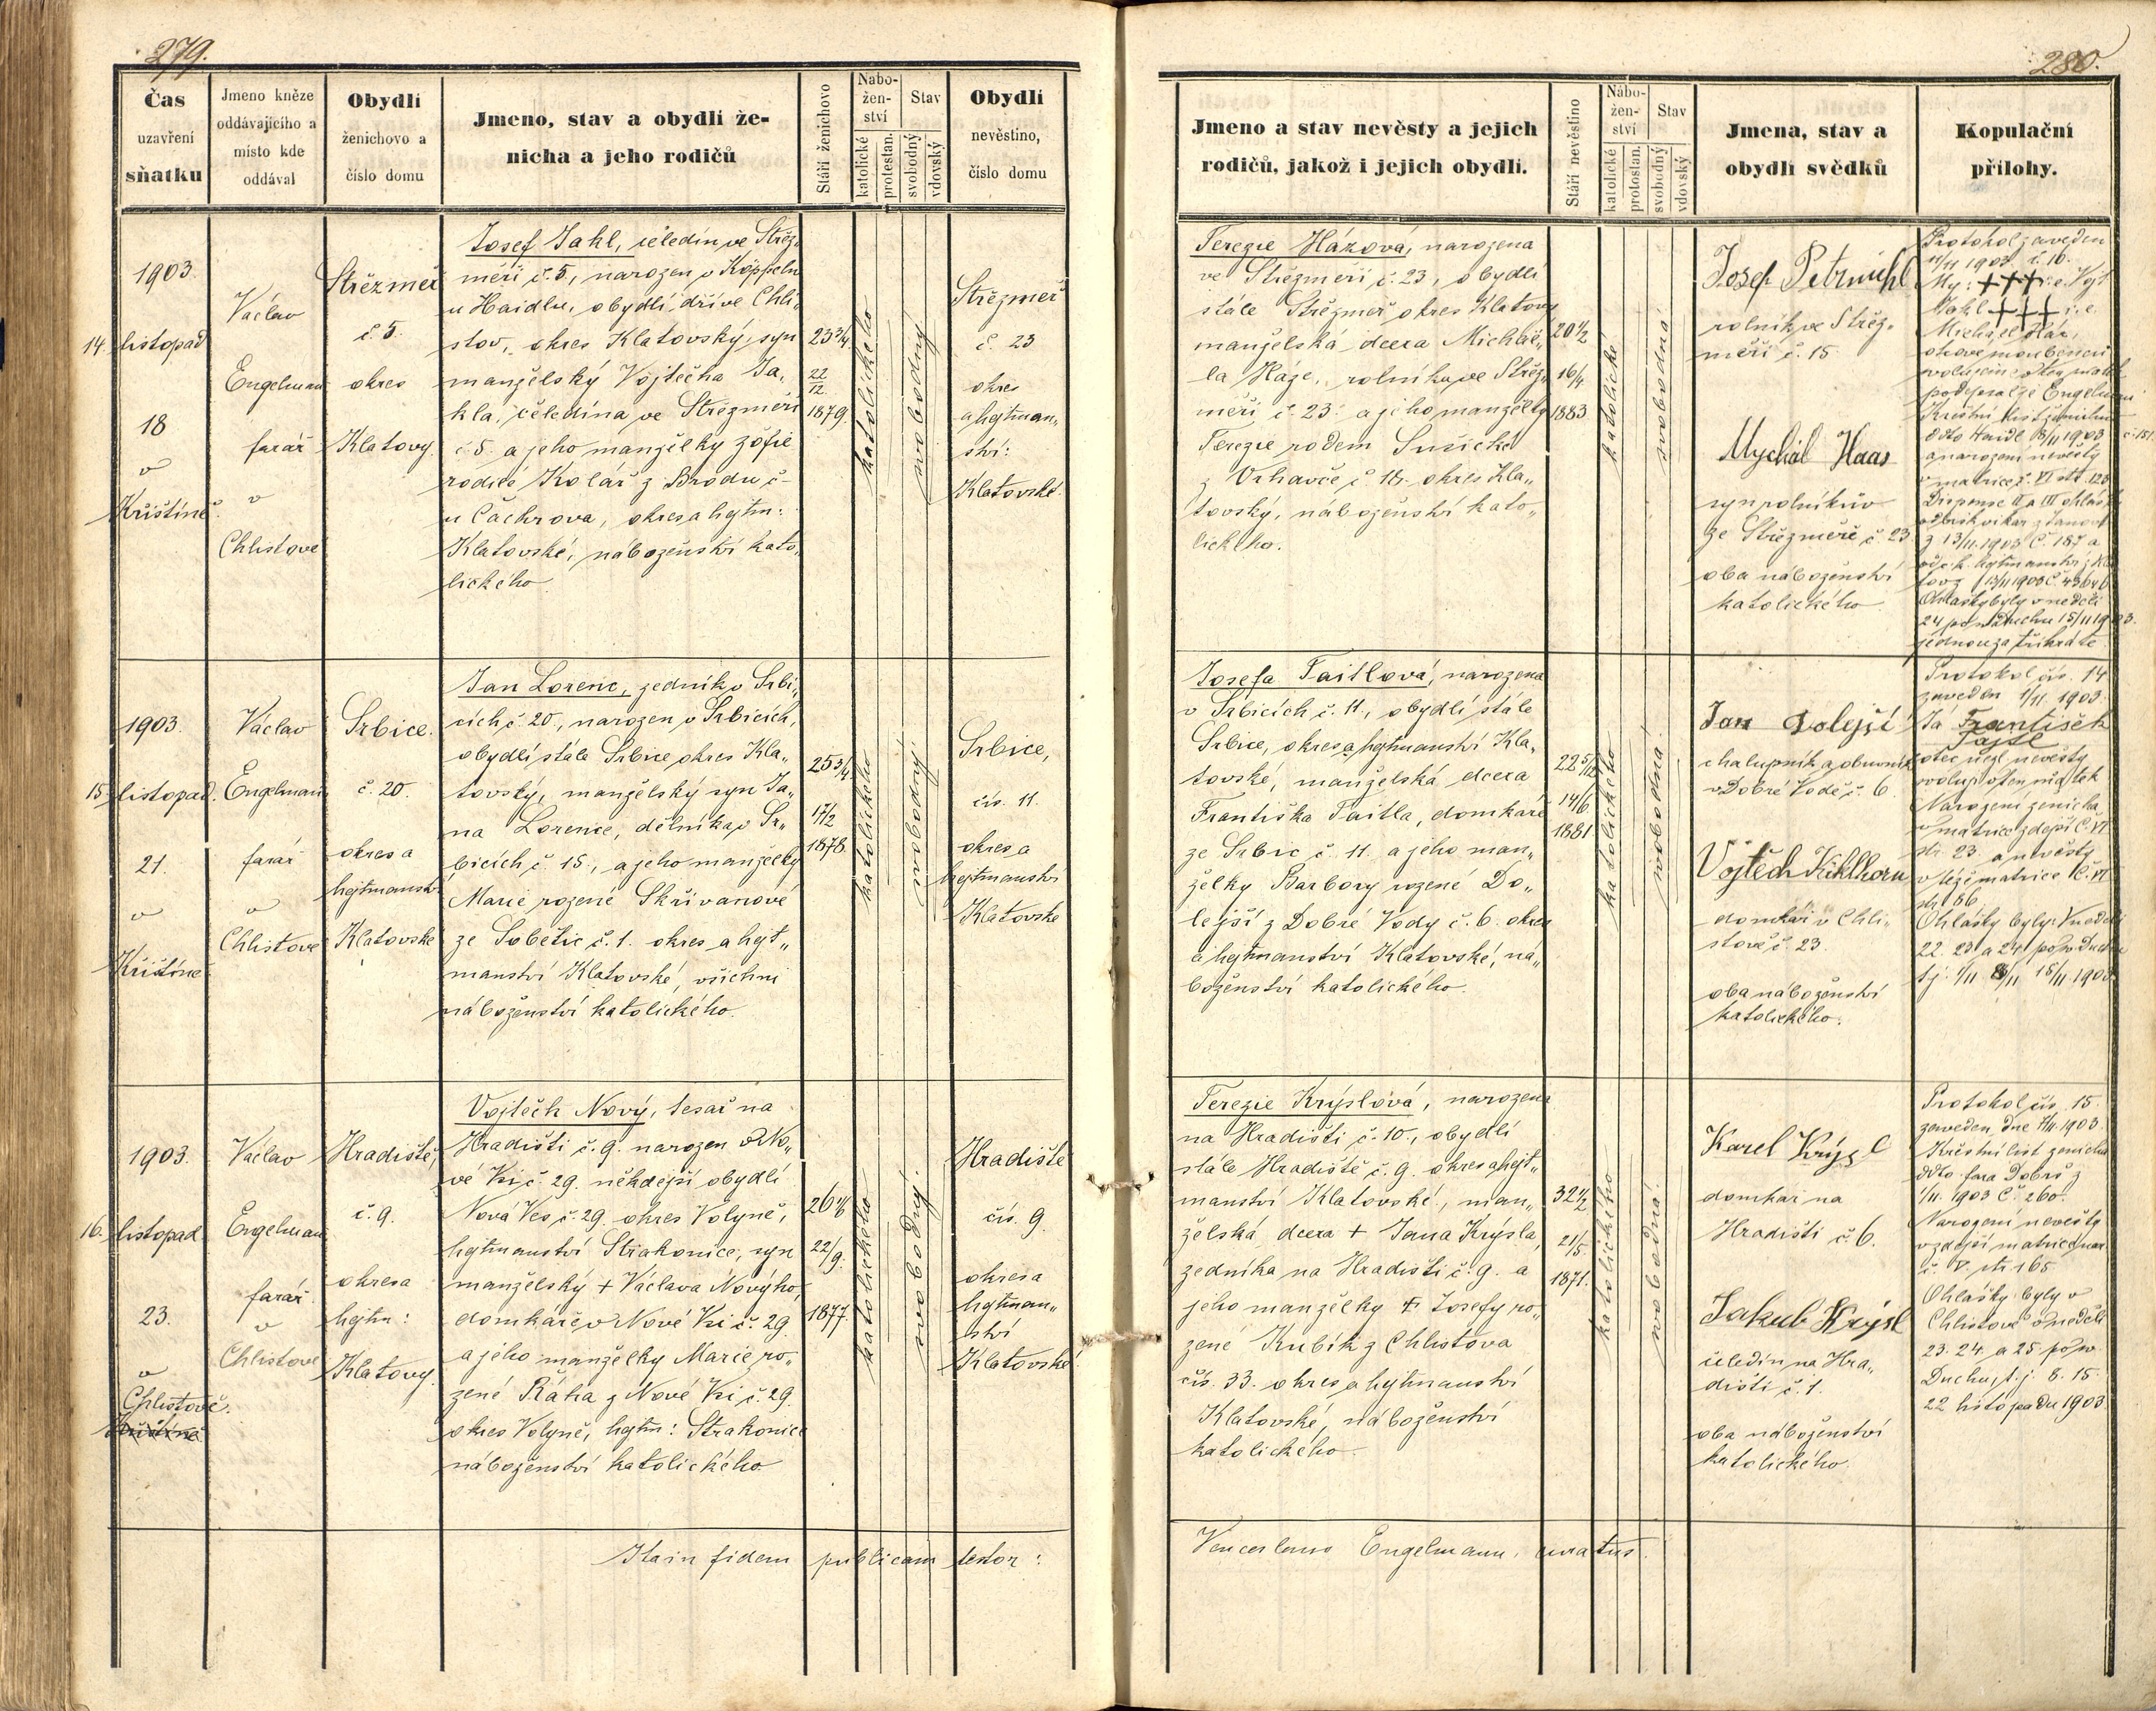 279.
Čas
uzavření
sňatku
Jmeno kněze
oddávajícího a
místo kde
oddával
Obydlí
ženichovo a
číslo domu
Jmeno, stav a obydlí že-
nicha a jeho rodičů
Stáří ženichovo
Nábo-
žen-
ství
katolické
protestan.
Stav
svobodný
vdovský
Obydlí
nevěstino,
číslo domu
1903.
14. listopad
18
v
Křištíně.
Václav
Engelman
farář
v
Chlistově
Střezmeř
č. 5.
okres
Klatovy.
Josef Jakl, čeledín ve Střez„
měři č. 5, narozen v Köppeln
u Haidlu, obydlí dříve Chli„
stov, okres Klatovský, syn
manželský Vojtěcha Ja„
kla, čeledína ve Střezměři
č. 5. a jeho manželky Žofie
rodilé Kolář z Brodu č-
u Čachrova, okres a hejtm:
Klatovské, náboženství kato„
lického.
23 3/4
22
12.
1879.
katolického
svobodný
Střezmeř
č. 23
okres
a hejtman„
ství:
Klatovské.
1903.
15. listopad.
21.
v
Křištíně
Václav
Engelman
farář
v
Chlistově
Srbice.
č. 20.
okres a
hejtmanství
Klatovské
Jan Lorenc, zedník v Srbi„
cích č. 20., narozen v Srbicích,
obydlí stále Srbice okres Kla„
tovský, manželský syn Ja„
na Lorence, dělníka v Sr„
bicích č. 15., a jeho manželky
Marie rozené Skřivanové
ze Sobětic č. 1. okres a hejt„
manství Klatovské, všichni
náboženství katolického.
25 3/4
17/2
1878.
katolického
svobodný
Srbice,
čís. 11.
okres a
hejtmanství
Klatovské
1903.
16. listopad
23.
v
Chlistově.
Křištíně
Václav
Engelman
farář
v
Chlistově
Hradiště,
č. 9.
okres a
hejtm:
Klatovy.
Vojtěch Nový, tesař na
Hradišti č. 9. narozen v No„
vé Vsi č. 29. někdejší obydlí
Nová Ves č. 29. okres Volyně,
hejtmanství Strakonice, syn
manželský + Václava Nového,
domkáře v Nové Vsi č. 29.
a jeho manželky Marie ro„
zené Ráha z Nové Vsi č. 29.
okres Volyně, hejtm: Strakonice
náboženství katolického.
22/9.
1877.
katolického
svobodný.
Hradiště
čís. 9.
okres a
hejtman„
ství
Klatovské
Ita in fidem publicam testor:
280.
Jmeno a stav nevěsty a jejich
rodičů, jakož i jejich obydlí.
Stáří nevěstino
Nábo-
žen-
ství
katolické
protostan.
Stav
svobodný
vdovský
Jmena, stav a
obydlí svědků
Kopulační
přílohy.
Terezie Házová, narozena
ve Střezměři č. 23, obydlí
stále Střezmeř okres Klatovy
manželská dcera Michae„
la Háze, rolníka ve Střez„
měři č. 23. a jeho manželky
Terezie rodem Sušické
z Vrhavče č. 18. okres Kla„
tovský, náboženství kato„
lického.
20 1/2
16/4
1883
katolické
svobodná
Josef Petrmichl
rolník ve Střez„
měři č. 15.
Mychál Haas
syn rolníkův
ze Střezměře č. 23
oba náboženství
katolického.
Protokol zaveden
11/11 1903 č. 16.
My: +++ i. e. Vojt
Jakl +++ i. e.
Michael Ház,
podepsal je Engelman
Křestní list ženichův
ddto Haidl 8/11 1903 č. 151
a narození nevěsty
v matrice č. VI str. 123
Dispense II a III ohlášky
z 13/11. 1903 Č. 187 a
od c. k. hejtmanství z Kla
tovy
Ohlášky byly v neděli
24 po sv. Duchu 15/11 1903.
jednou za třikráte
Josefa Taitlová, narozena
v Srbicích č. 11., obydlí stále
Srbice, okres a hejtmanství Kla„
tovské, manželská dcera
Františka Taitla, domkáře
ze Srbic č. 11. a jeho man„
želky Barbory rozené Do„
lejší z Dobré Vody č. 6. okres
a hejtmanství Klatovské, ná„
boženství katolického.
22 5/12
14/6
1881
katolického
svobodná.
Jan Dolejší
chalupník a obuvník
v Dobré Vodě č. 6.
Vojtěch Kühlhorn
domkář v Chli„
stově č. 23.
oba náboženství
katolického.
Protokol čís. 14
zaveden 1/11. 1903.
Já František
Tajtl
otec nezl. nevěsty
svoluji v ten sňatek
Narození ženicha
v matrice zdejší Č. VI
str. 23 a nevěsty
v téže matrice Č. VI
str. 66
Ohlášky byly: V neděli
22. 23 a 24 po sv. Duchu
t. j. 1/11 8/11 15/11 1903.
Terezie Krýslová, narozena
na Hradišti č. 10., obydlí
stále Hradiště č. 9. okres a hejt„
manství Klatovské, man„
želská dcera + Jana Krýsla,
zedníka na Hradišti č. 9. a
jeho manželky + Josefy ro„
zené Kubík z Chlistova
čís. 33. okres a hejtmanství
Klatovské, náboženství
katolického.
32 1/2
21/5.
1871.
katolického
svobodná.
Karel Krýsl
domkář na
Hradišti č. 6.
Jakub Krýsl
čeledín na Hra„
dišti č. 1.
oba náboženství
katolického.
Protokol čís. 15.
zaveden dne 7/11. 1903.
Křestní list ženicha
ddto fara Dobrš z
1/11. 1903 Č. 260.
Narození nevěsty
v zdejší matrice nar.
č. V. str. 165
Ohlášky byly v
Chlistově v neděli
23. 24. a 25. po sv.
Duchu, t. j. 8. 15.
22 listopadu 1903.
Venceslaus Engelmann, curatus.